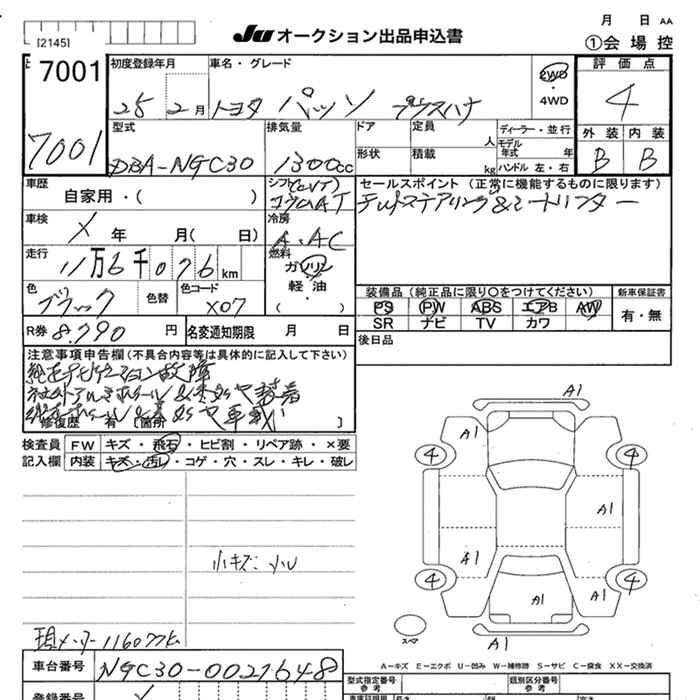 月 日 AA
[2145]
JU オークション出品申込書
①会場控
7001
初度登録年月
車名・グレード
2WD
・
4WD
評価点
25 2月
トヨタ パッソ プラスハナ
4
7001
型式
排気量
ドア
定員
人
ディーラー・並行
モデル年式 年
外装
内装
DBA-NGC30
1300cc
形状
積載
kg
ハンドル 左・右
B
B
車歴
自家用・( )
シフト(CVT)
コラムAT
セールスポイント (正常に機能するものに限ります)
車検
X 年 月( 日)
冷房
A.AC
走行
11万6千076km
燃料
ガソリン
軽・油
( )
装備品(純正品に限り○をつけてください)
新車保証書
色
ブラック
色替
色コード
X07
PS PW ABS エアB AW
SR ナビ TV カワ
有・無
R券 8,790円
名変通知期限 月 日
後日品
注意事項申告欄(不具合内容等は具体的に記入して下さい)
修復歴 有 [箇所 ]
検査員
記入欄
FW
キズ・飛石・ヒビ割・リペア跡・×要
内装
キズ・汚レ・コゲ・穴・スレ・キレ・破レ
A1
A1
4
4
A1
A1
4
4
A1
A1
A1
小キズ 小U
スペア
現メーター116077k
A-キズ E-エクボ U-凹み W-補修跡 S-サビ C-腐食 XX-交換済
車台番号
NGC30-0021648
型式指定番号
参考
類別区分番号
参考
登録番号
長さ
幅
高さ